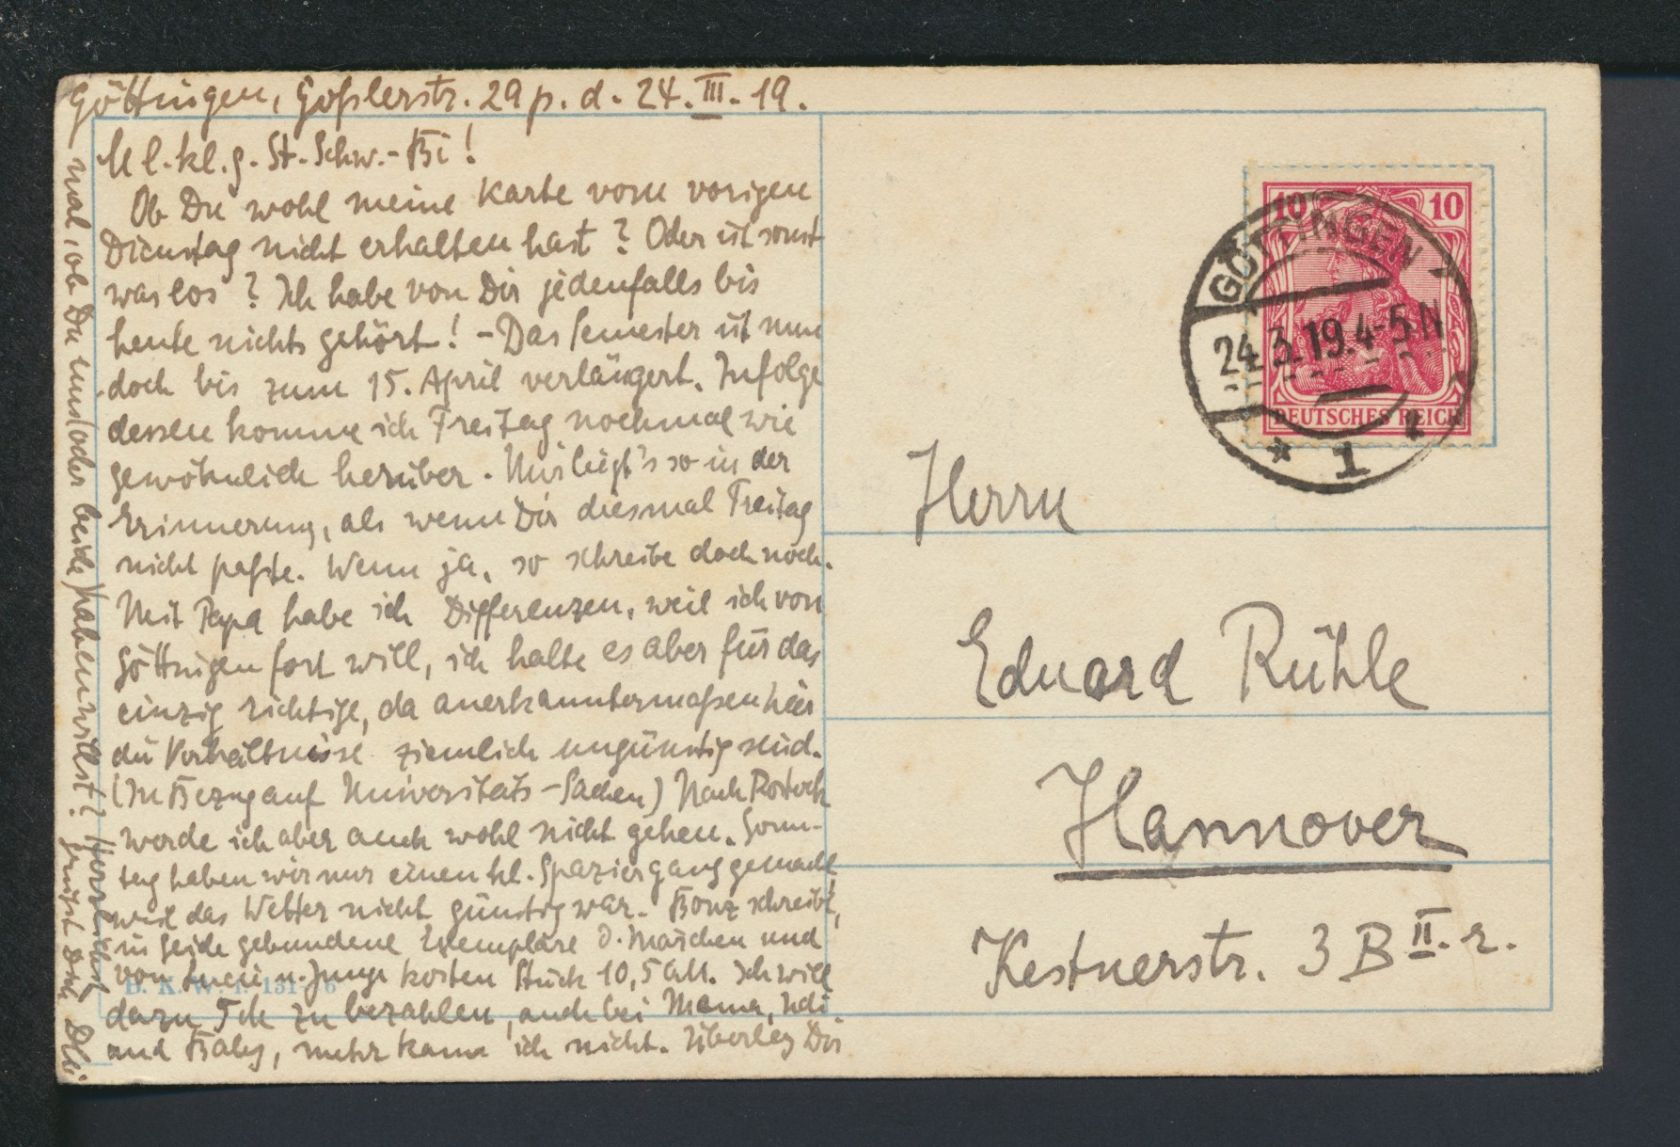 Göttingen, Goßlerstr. 29 p. d. 24. III. 19.
M l. kl. g. St. Schw.-Bi!
Ob Du wohl meine Karte vom vorigen
Dienstag nicht erhalten hast? Oder ist sonst
was los? Ich habe von Dir jedenfalls bis
heute nichts gehört! – Das Semester ist nun
doch bis zum 15. April verlängert. Infolge
dessen komme ich Freitag nochmal wie
gewöhnlich herüber. Mir liegt's so in der
Erinnerung, als wenn Dir diesmal Freitag
nicht paßte. Wenn ja, so schreibe doch noch.
Mit Papa habe ich Differenzen, weil ich von
Göttingen fort will, ich halte es aber für das
einzig richtige, da anerkanntermaßen hier
die Verhältnisse ziemlich ungünstig sind.
(In Bezug auf Universitäts-Sachen) Nach Rostock
werde ich aber auch wohl nicht gehen. Sonn-
tag haben wir nur einen kl. Spaziergang gemacht
weil das Wetter nicht günstig war. Bonz schreibt,
in Seide gebundene Exemplare d. Märchen und
von kosten Stück 10,50 M. Ich will
dazu 5 M zu bezahlen, auch bei Mama,
und Baby, mehr kann ich nicht. Überleg Dir
mal, ob Du eins (oder beide) haben willst? Herzlichst
grüßt Dich
B. K. W. I. 131-76
10 10
DEUTSCHES REICH
GÖTTINGEN
24.3.19.4-5N
* 1
Herrn
Eduard Rühle
Hannover
Kestnerstr. 3 B II. r.